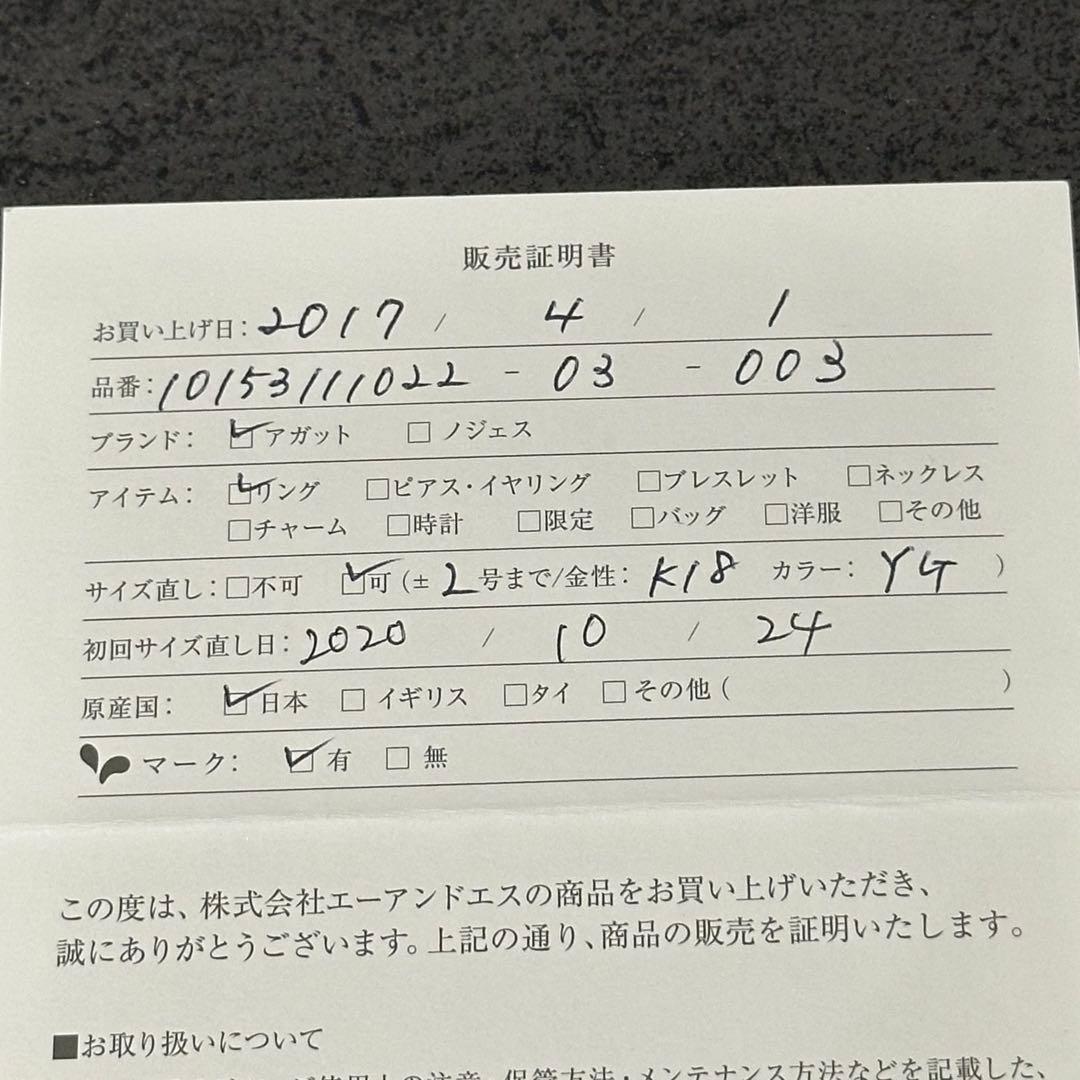 販売証明書
お買い上げ日：2017 / 4 / 1
品番：10153111022 - 03 - 003
ブランド： ☑アガット □ ノジェス
アイテム： ☑リング □ピアス・イヤリング □ブレスレット □ネックレス
□チャーム □時計 □限定 □バッグ □洋服 □その他
サイズ直し：□不可 ☑可（± 2 号まで/金性： K18 カラー： YG ）
初回サイズ直し日：2020 / 10 / 24
原産国： ☑日本 □ イギリス □タイ □ その他（ ）
マーク： ☑ 有 □ 無
この度は、株式会社エーアンドエスの商品をお買い上げいただき、
誠にありがとうございます。上記の通り、商品の販売を証明いたします。
■お取り扱いについて
使用上の注意、保管方法・メンテナンス方法などを記載した、